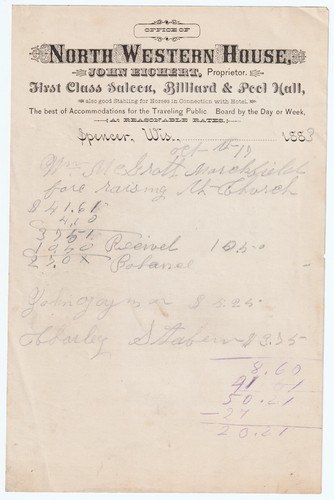 OFFICE OF
NORTH WESTERN HOUSE,
JOHN EICHERT, Proprietor.
First Class Saloon, Billiard & Pool Hall,
also good Stabling for Horses in Connection with Hotel.
The best of Accommodations for the Traveling Public. Board by the Day or Week,
(At REASONABLE RATES.)
Spencer, Wis., 1883
Oct th 19
Wm McGrott Marshfield
fore raising th Church
$ 41.61
4.10
37.51
10.50 Receivet 10.50
Balance
$ 5.25
Charley Stabern $ 3.35
8.60
41 61
50.21
27
20.21